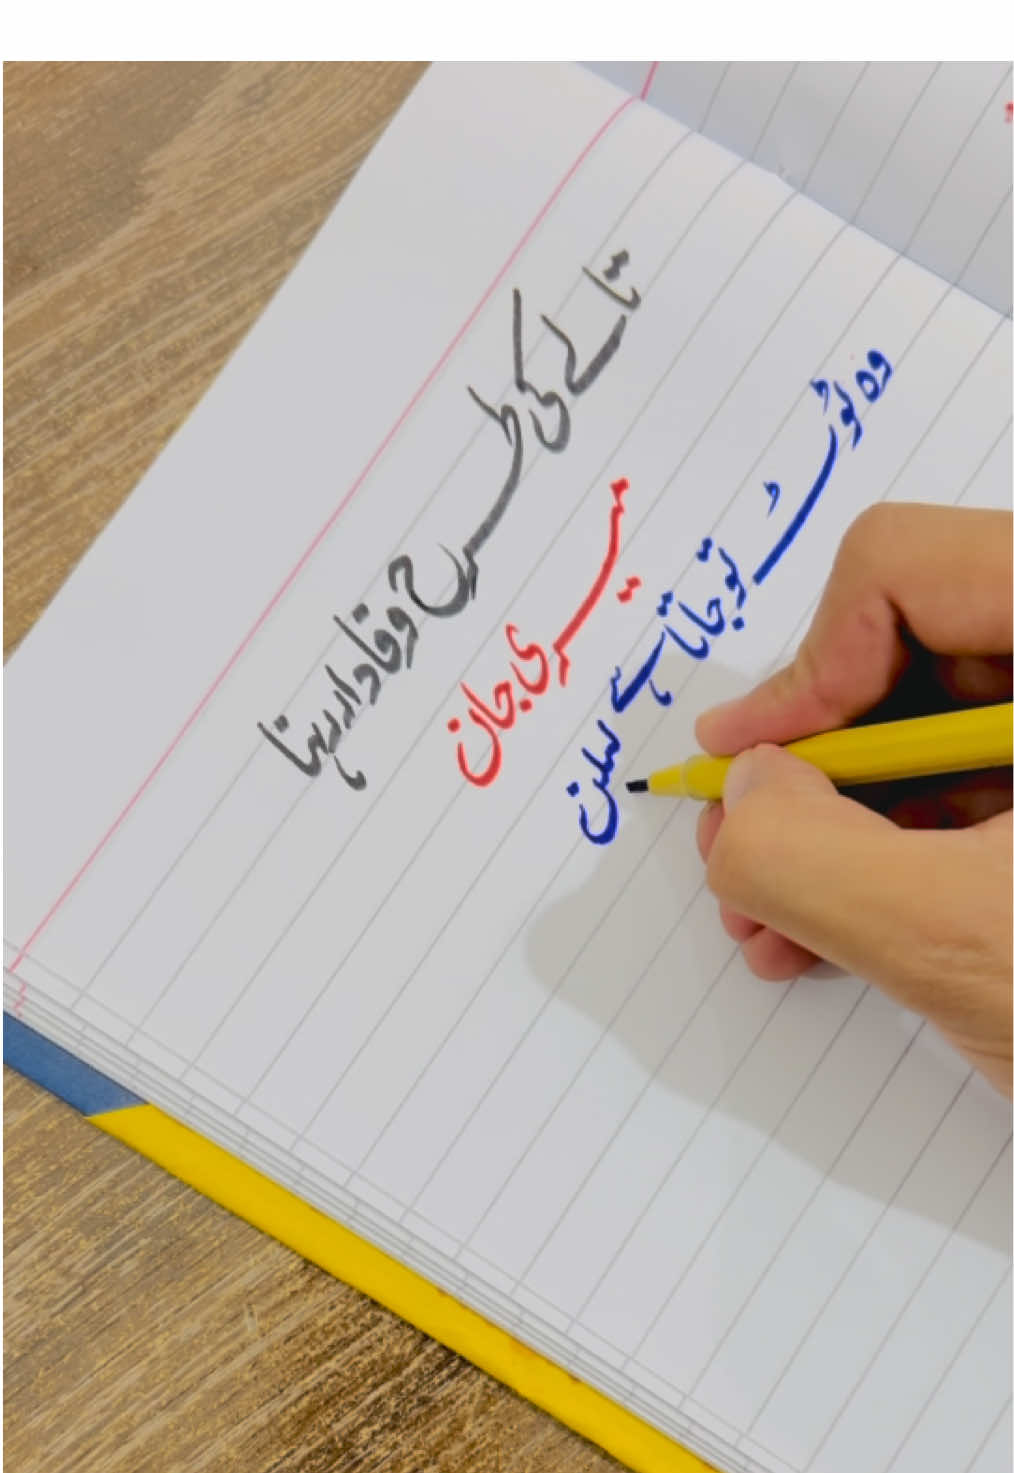 تالے کی طرح وفادار رہنا
میری جان
وہ ٹوٹ تو جاتا ہے لیکن